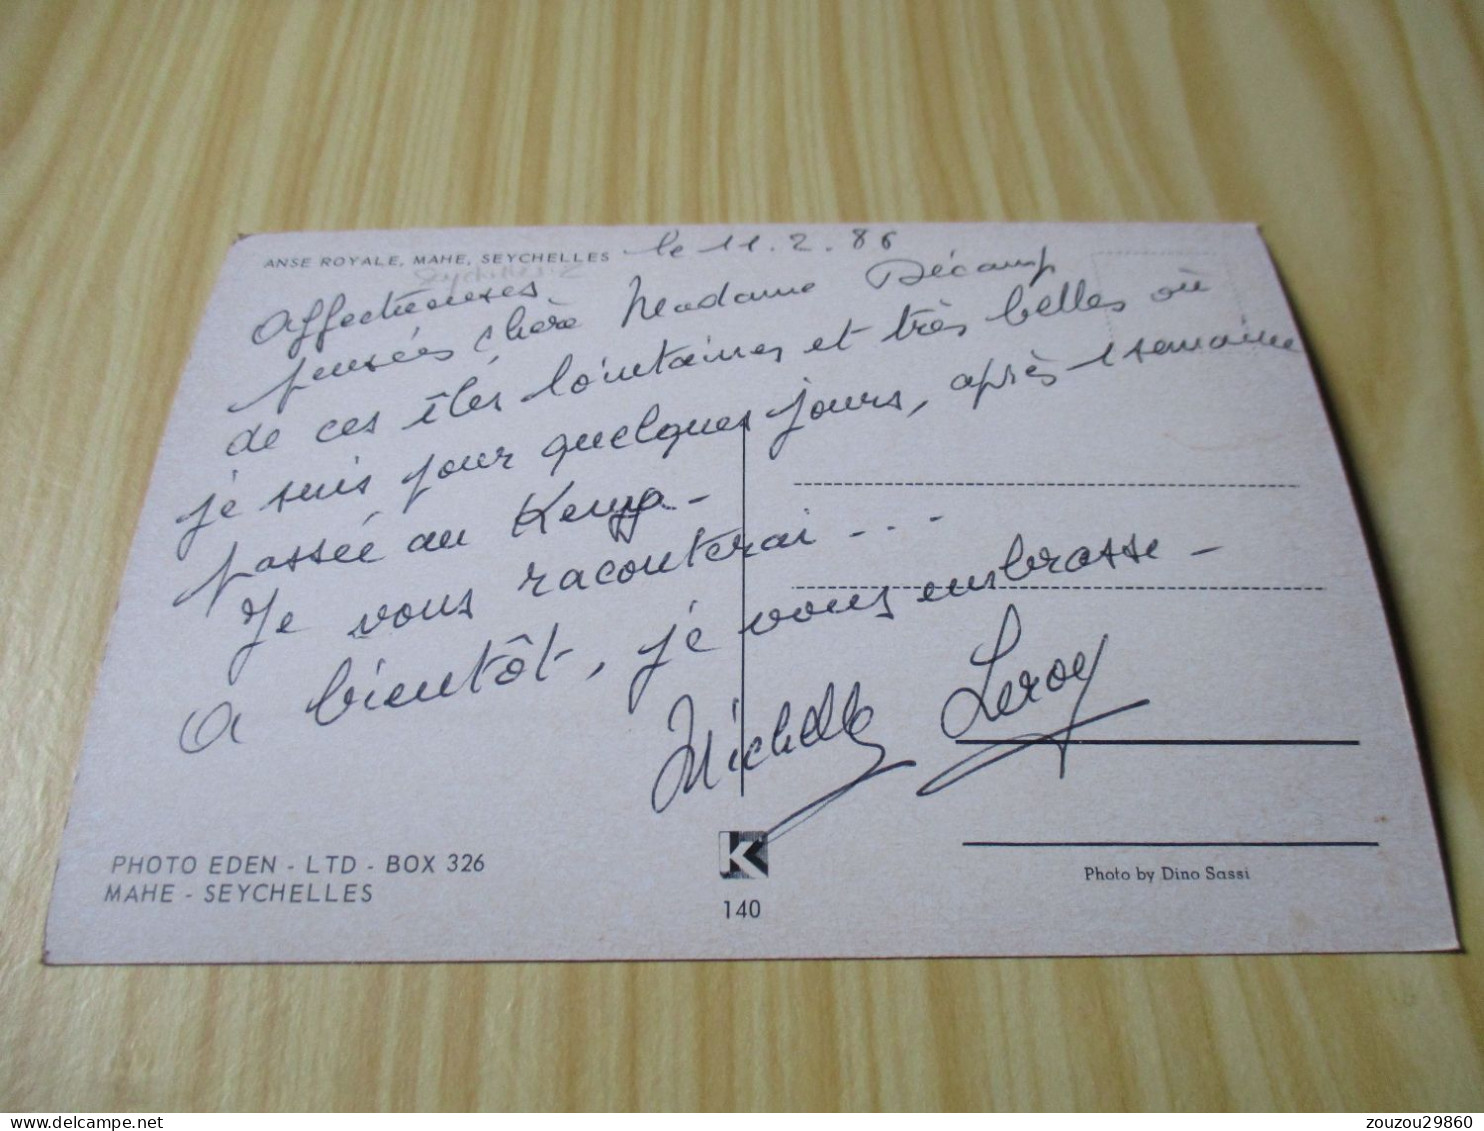 ANSE ROYALE, MAHE, SEYCHELLES le 11.2.86
Seychelles
Affectueuses
pensées chère Madame Décamp
de ces îles lointaines et très belles où
je suis pour quelques jours, après 1 semaine
passée au Kenya -
Je vous raconterai - - -
A bientôt, je vous embrasse -
Michelle Leroy
PHOTO EDEN - LTD - BOX 326
MAHE - SEYCHELLES
K
140
Photo by Dino Sassi
zouzou29860